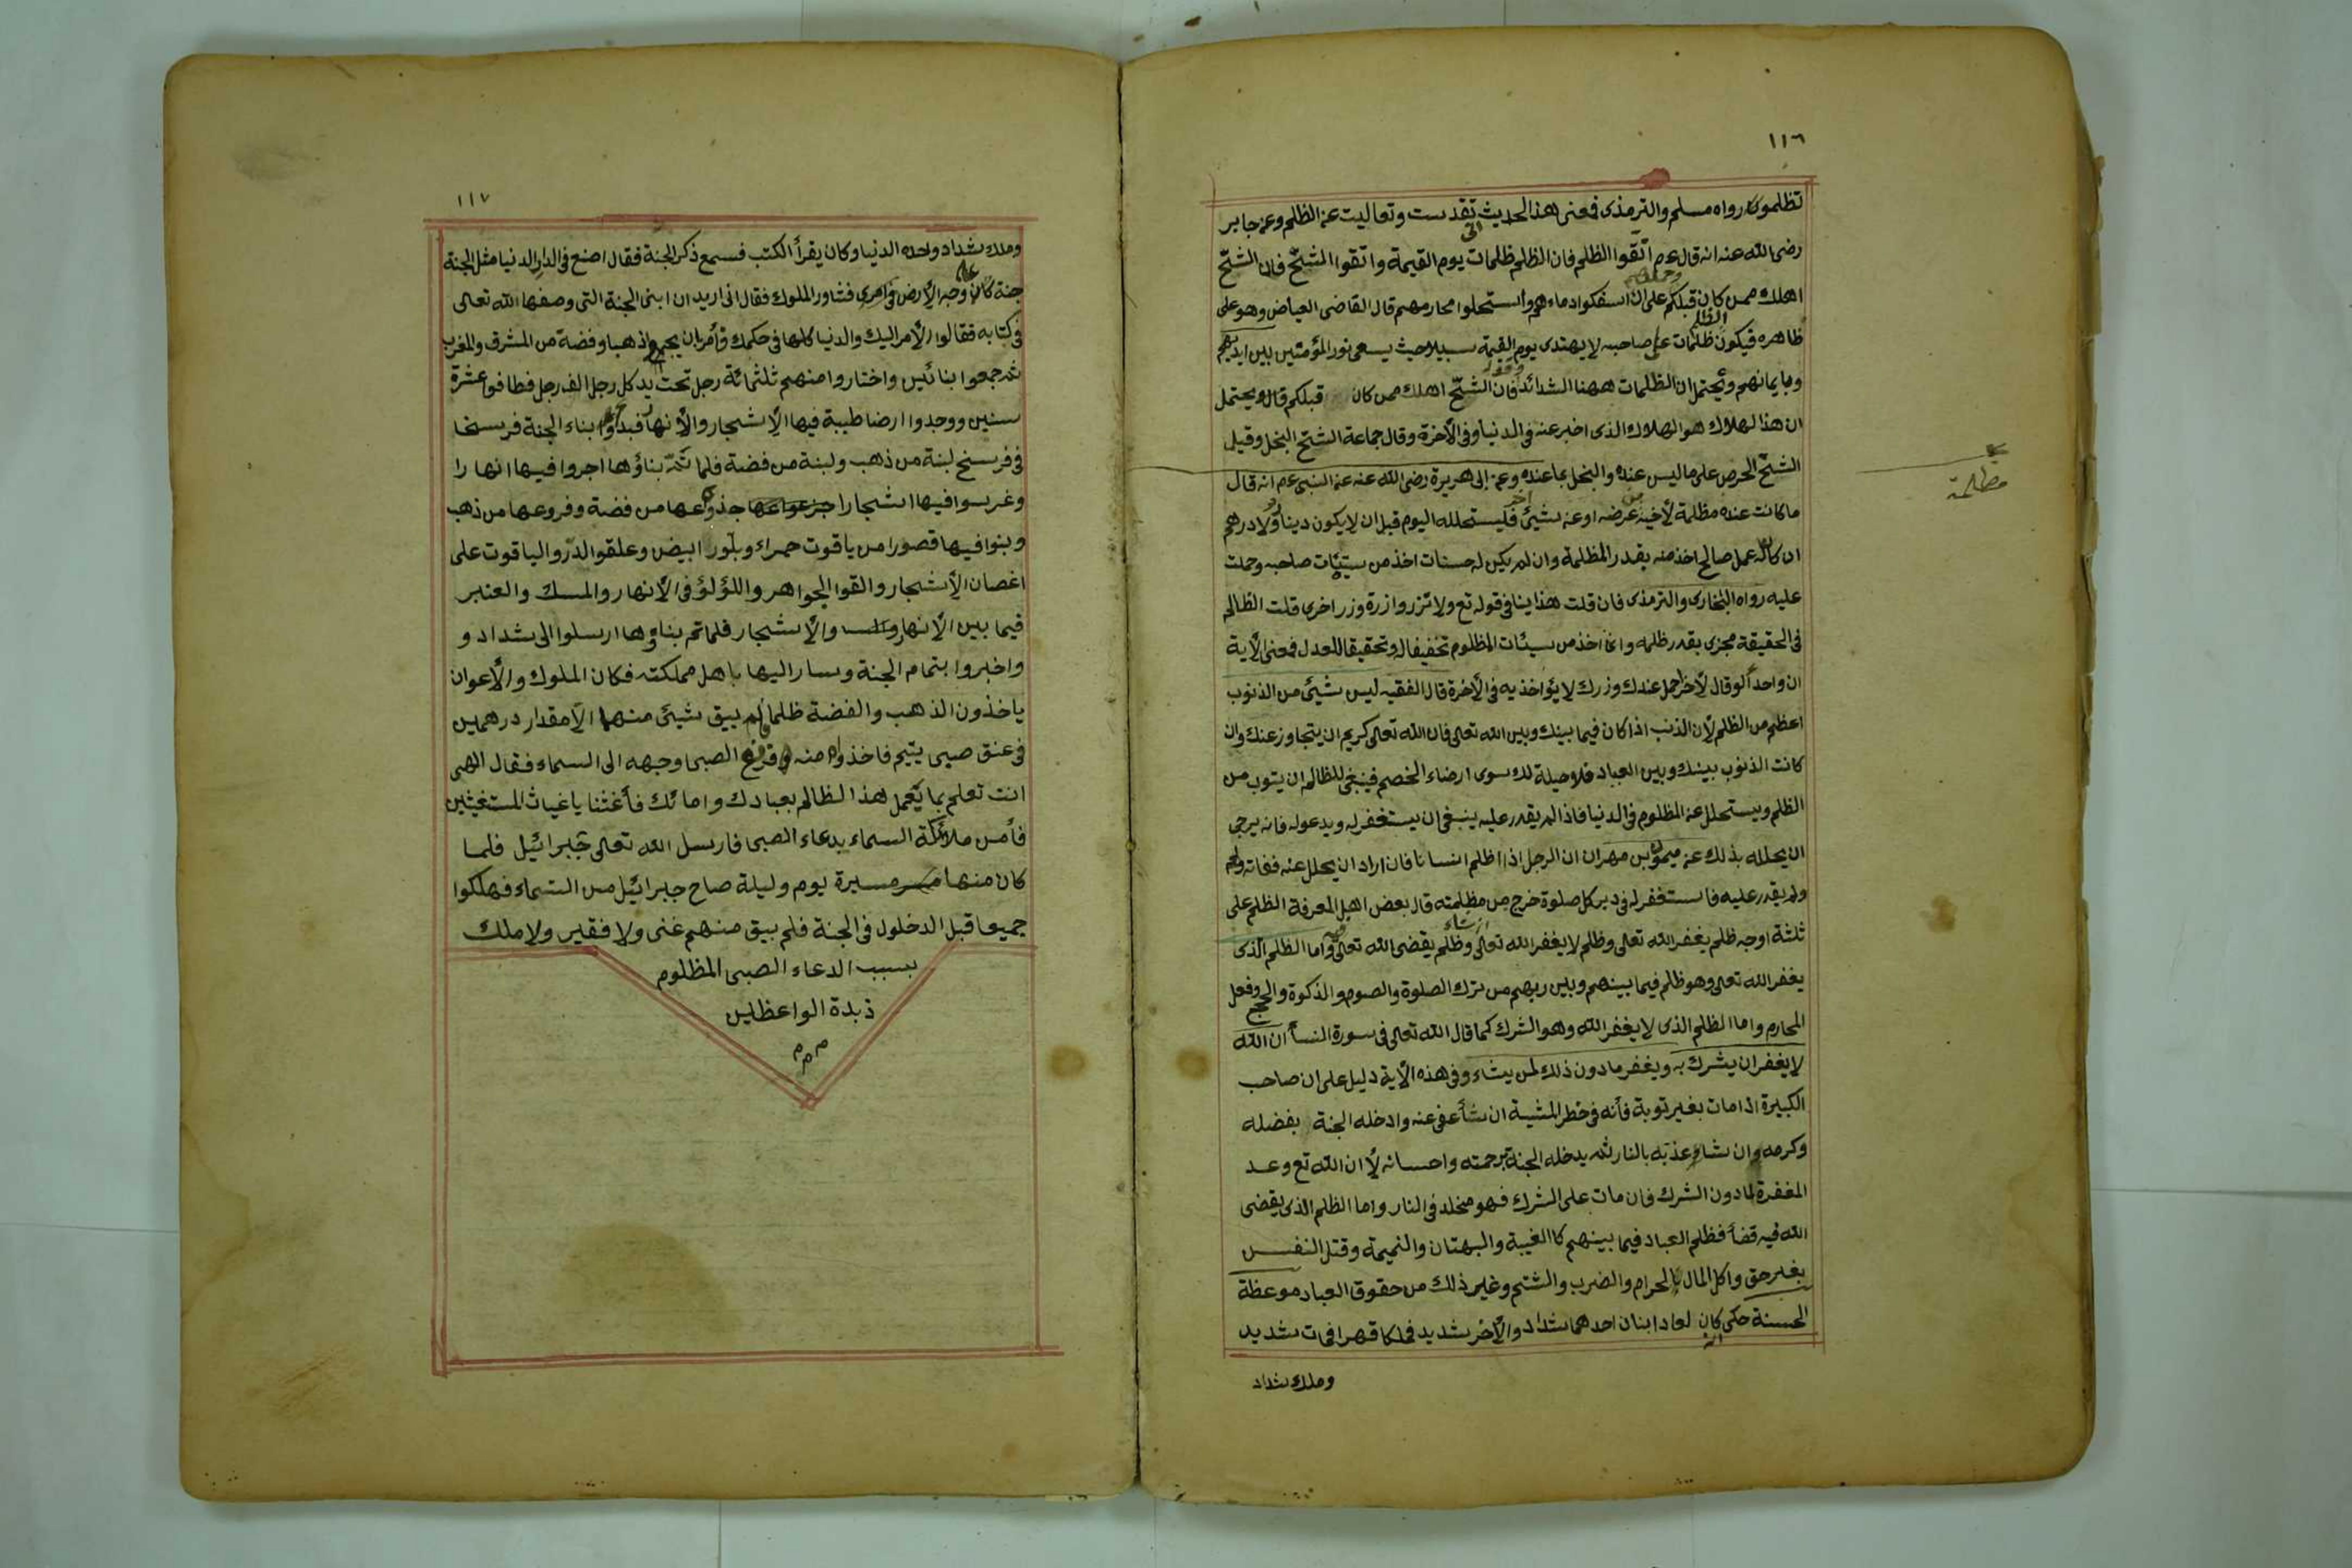 ١١٦
تظلموا رواه مسلم والترمذى فمعنى هذا الحديث تقدست وتعاليت عن الظلم وعن جابر
رضى الله عنه انه قال عم اتقوا الظلم فان الظلم ظلمات يوم القيمة واتقوا الشح فان الشح
اهلك من كان قبلكم على ان سفكوا دماءهم واستحلوا محارمهم قال القاضى العياض وهو على
ظاهره فيكون ظلمات على صاحبه لا يهتدى يوم القيمة سبيلا حيث يسعى نور المؤمنين بين ايديهم
وبايمانهم ويحتمل ان الظلمات ههنا الشدائد فان الشح اهلك من كان قبلكم قال ويحتمل
ان هذا لهلاك هو الهلاك الذى اخبر عنه فى الدنيا وفى الأخرة وقال جماعة الشح البخل وقيل
الشح الحرص على ما ليس عنده والبخل بما عنده وعن ابى هريرة رضى الله عنه عن النبى عم انه قال
مظلمة
ما كانت عنده مظلمة لأخيه من عرضه او عن شيئ فليستحلله اليوم قبل ان لا يكون دينار ولا درهم
ان كان له عمل صالح اخذ منه بقدر المظلمة وان لم يكن له حسنات اخذ من سيئات صاحبه وحملت
عليه رواه البخارى والترمذى فان قلت هذا ينافى قوله تع ولا تزر وازرة وزر اخرى قلت الظالم
فى الحقيقة مجزى بقدر ظلمه وانما اخذ من سيئات المظلوم تخفيفا له وتحقيقا للعدل فمعنى الأية
ان واحدا لو قال لأخر احمل عندك وزرك لا يؤاخذ به فى الأخرة قال الفقيه ليس شيئ من الذنوب
اعظم من الظلم لأن الذنب اذا كان فيما بينك وبين الله تعالى فان الله تعالى كريم ان يتجاوز عنك وان
كانت الذنوب بينك وبين العباد فلا حيلة لك سوى ارضاء الخصم فينبغى للظالم ان يتوب من
الظلم ويستحلل عن المظلوم فى الدنيا فاذا لم يقدر عليه ينبغى ان يستغفر له ويدعو له فانه يرجى
ان يحلله بذلك عن ميمون بن مهران ان الرجل اذا ظلم انسانا فان اراد ان يحلل عنه ففاته
ولم يقدر عليه فاستغفر له فى دبر كل صلوة خرج من مظلمته قال بعض اهل المعرفة الظلم على
ثلثة اوجه ظلم يغفر الله تعالى وظلم لا يغفر الله تعالى وظلم يقضى الله تعالى واما الظلم الذى
يغفر الله تعالى وهو ظلم فيما بينهم وبين ربهم من ترك الصلوة والصوم والذكوة والحج وفعل
المحارم واما الظلم الذى لا يغفر الله وهو الشرك كما قال الله تعالى فى سورة النسأ ان الله
لا يغفر ان يشرك به ويغفر ما دون ذلك لمن يشاء وفى هذه الأية دليل على ان صاحب
الكبيرة اذا مات بغير توبة فأنه فى خطر المشية ان شأ عفى عنه وادخله الجنة بفضله
وكرمه وان شاء عذبه بالنار ثم يدخله الجنة برحمته واحسانه لأن الله تع وعد
المغفرة لما دون الشرك فان مات على الشرك فهو مخلد فى النار واما الظلم الذى يقضى
الله فيه قضأ فظلم العباد فيما بينهم كالغيبة والبهتان والنميمة وقتل النفس
بغير حق واكل المال بالحرام والضرب والشتم وغير ذلك من حقوق العباد موعظة
الحسنة حكى كان لعاد ابنان احدهما شداد والأخر شديد فملكا قهرا فمات شديد
وملك شداد
١١٧
وملك شداد واحده الدنيا وكان يقرأ الكتب فسمع ذكر الجنة فقال اصنع فى الدار الدنيا مثل الجنة
جنة كائن على وجه الأرض فى امرى فشاور الملوك فقال انى اريد ان ابنى الجنة التى وصفها الله تعالى
فى كتابه فقالوا الأمر اليك والدنيا كلها فى حكمك فأمر بان يجمعوا ذهبا وفضة من المشرق والمغرب
ثم جمعوا بنائين واختاروا منهم ثلثمائة رجل تحت يد كل رجل الف رجل فطافوا عشرة
سنين ووجدوا ارضا طيبة فيها الأشجار والأنهار فبدأوا بناء الجنة فرسخا
فى فرسخ لبنة من ذهب ولبنة من فضة فلما تم بناؤها اجروا فيها انهارا
وغرسوا فيها اشجارا جذوعها من فضة وفروعها من ذهب
وبنوا فيها قصورا من ياقوت حمراء وبلور ابيض وعلقوا الدر والياقوت على
اغصان الأشجار والقوا الجواهر واللؤلؤ فى الأنهار والمسك والعنبر
فيما بين الأنهار والأشجار فلما تم بناؤها ارسلوا الى شداد و
واخبروا بتمام الجنة وسار اليها باهل مملكته فكان الملوك والأعوان
ياخذون الذهب والفضة ظلما لم يبق شيئ منهما الا مقدار درهمين
فى عنق صبى يتيم فاخذوا منه فرفع الصبى وجهه الى السماء فقال الهى
انت تعلم بما يعمل هذا الظالم بعبادك وامائك فأغثنا يا غياث المستغيثين
فأمن ملائكة السماء بدعاء الصبى فارسل الله تعالى جبرائيل فلما
كان منها مسيرة يوم وليلة صاح جبرائيل من السماء فهلكوا
جميعا قبل الدخلول فى الجنة فلم يبق منهم غنى ولا فقير ولا ملك
بسبب الدعاء الصبى المظلوم
ذبدة الواعظين
م م م